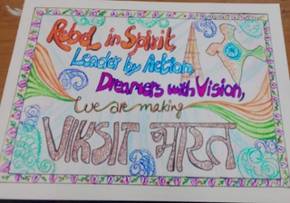 Rebel in Spirit,
Leader by Action
Dreamers with Vision,
We are making
VIKSIT भारत